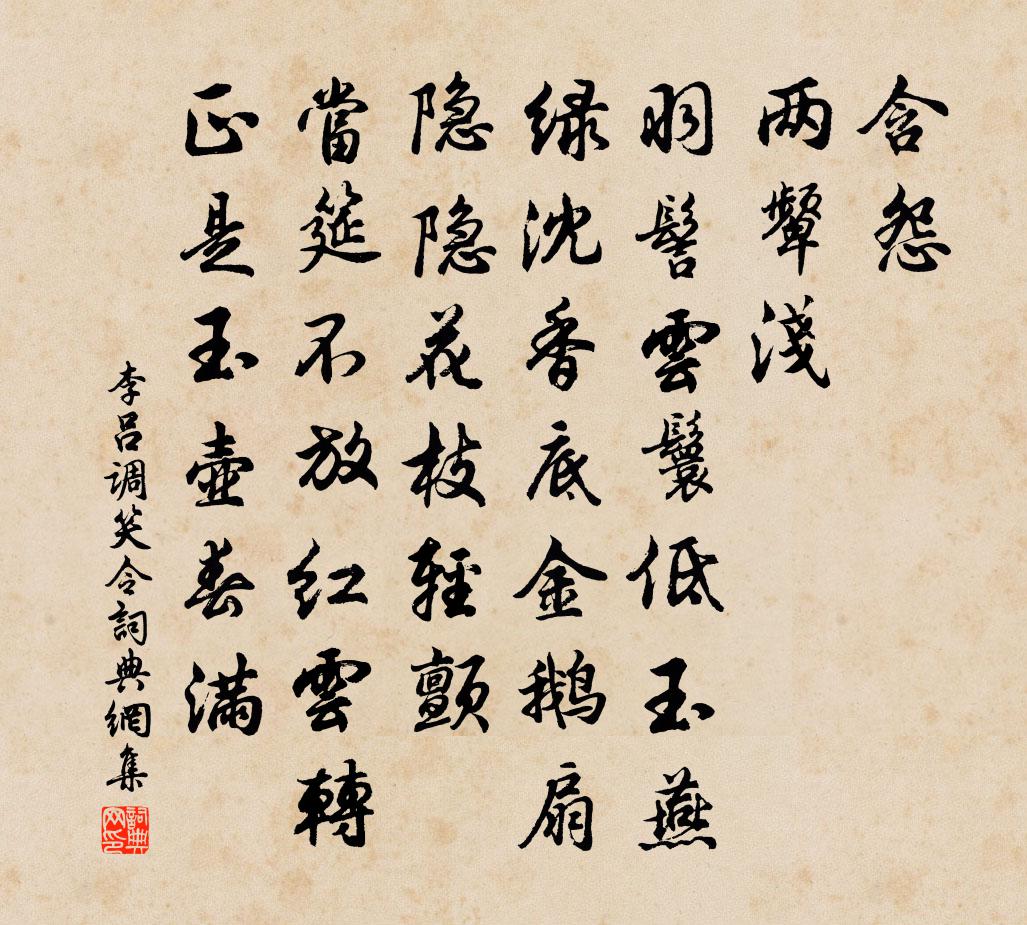 含怨
两颦淺
羽髻雲鬟低玉燕
绿沈香底金鹅扇
隐隐花枝輕颤
當筵不放红雲轉
正是玉壺春满
李吕调笑令詞典網集
詞典网印